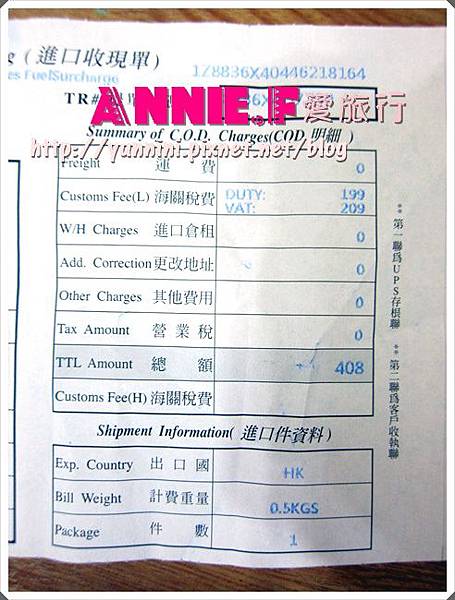 g ( 進口收現單 )
es FuelSurcharge
1Z8836X40446218164
TR#
ANNIE.F愛旅行
Summary of C.O.D. Charges(COD 明細 )
http://yunnini.pixnet.net/blog
Freight 運 費 0
Customs Fee(L) 海關稅費 DUTY: 199
VAT: 209
W/H Charges 進口倉租 0
Add. Correction 更改地址 0
Other Charges 其他費用 0
Tax Amount 營業稅 0
TTL Amount 總 額 408
Customs Fee(H) 海關稅費
Shipment Information( 進口件資料 )
Exp. Country 出口國 HK
Bill Weight 計費重量 0.5KGS
Package 件 數 1
** 第一聯為UPS存根聯 ** 第二聯為客戶收執聯